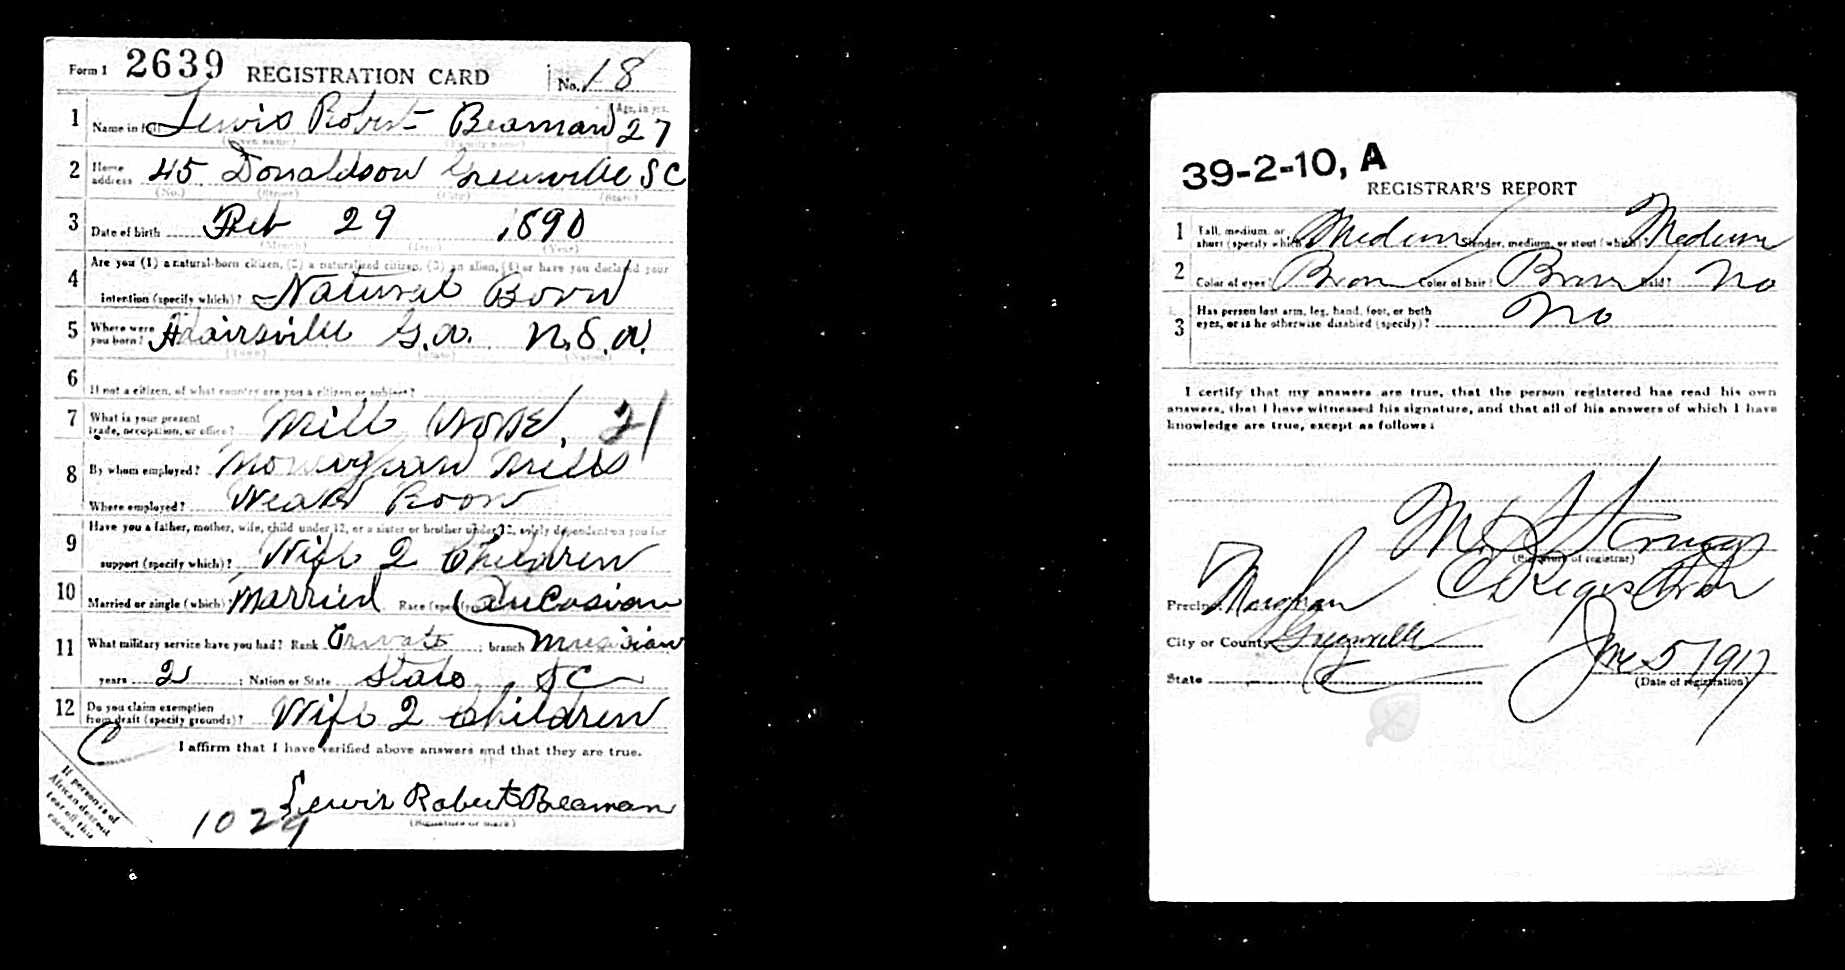 Form 1 2639 REGISTRATION CARD No. 18
1 Name in full Lewis Robert Beaman 27 Age, in yrs.
(Given name) (Family name)
2 Home address 45 Donaldson Greenville S C
(No.) (Street) (City) (State)
3 Date of birth Feb 29 1890
(Month) (Day) (Year)
4 Are you (1) a natural-born citizen, (2) a naturalized citizen, (3) an alien, (4) or have you declared your
intention (specify which)? Natural Born
5 Where were you born? Blairsville G.a. U.S.A.
(Town) (State) (Nation)
6 If not a citizen, of what country are you a citizen or subject?
7 What is your present trade, occupation, or office? Mill Work, 21
8 By whom employed? Monaghan Mills
Where employed? Weave Room
9 Have you a father, mother, wife, child under 12, or a sister or brother under 12, solely dependent on you for
support (specify which)? Wife 2 Children
10 Married or single (which) Married Race (specify which) Caucasian
11 What military service have you had? Rank Private ; branch Musician
years 2 ; Nation or State State S C
12 Do you claim exemption from draft (specify grounds)? Wife 2 Children
C I affirm that I have verified above answers and that they are true.
Lewis Robert Beaman
(Signature or mark)
If person is of
African descent
tear off this
corner
1029
39-2-10, A
REGISTRAR'S REPORT
1 Tall, medium, or short (specify which)? Medium Slender, medium, or stout (which)? Medium
2 Color of eyes? Brown Color of hair? Brown Bald? No
3 Has person lost arm, leg, hand, foot, or both
eyes, or is he otherwise disabled (specify)? No
I certify that my answers are true, that the person registered has read his own
answers, that I have witnessed his signature, and that all of his answers of which I have
knowledge are true, except as follows:
(Signature of registrar)
Registrar
Precinct Monaghan
City or County Greenville
State S C
June 5 1917
(Date of registration)